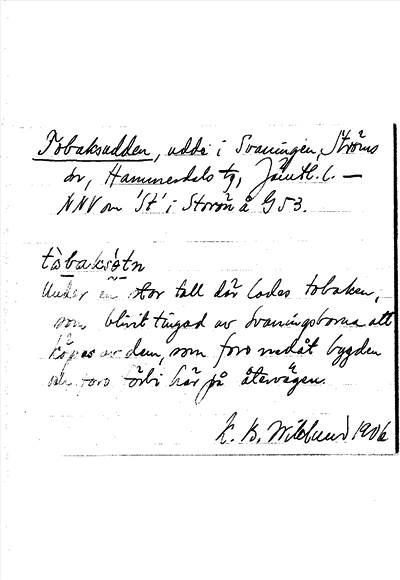 Tobaksudden, udde i Svaningen, Ströms
sn, Hammerdals tg, Jämtl. l. —
NNV om 'St' i Storön å G53.
tòbaksötn
Under en stor tall där lades tobaken,
som blivit tingad av Svaningsborna att
köpas av dem, som foro nedåt bygden
och foro förbi här på återvägen.
K. B. Wiklund 1906